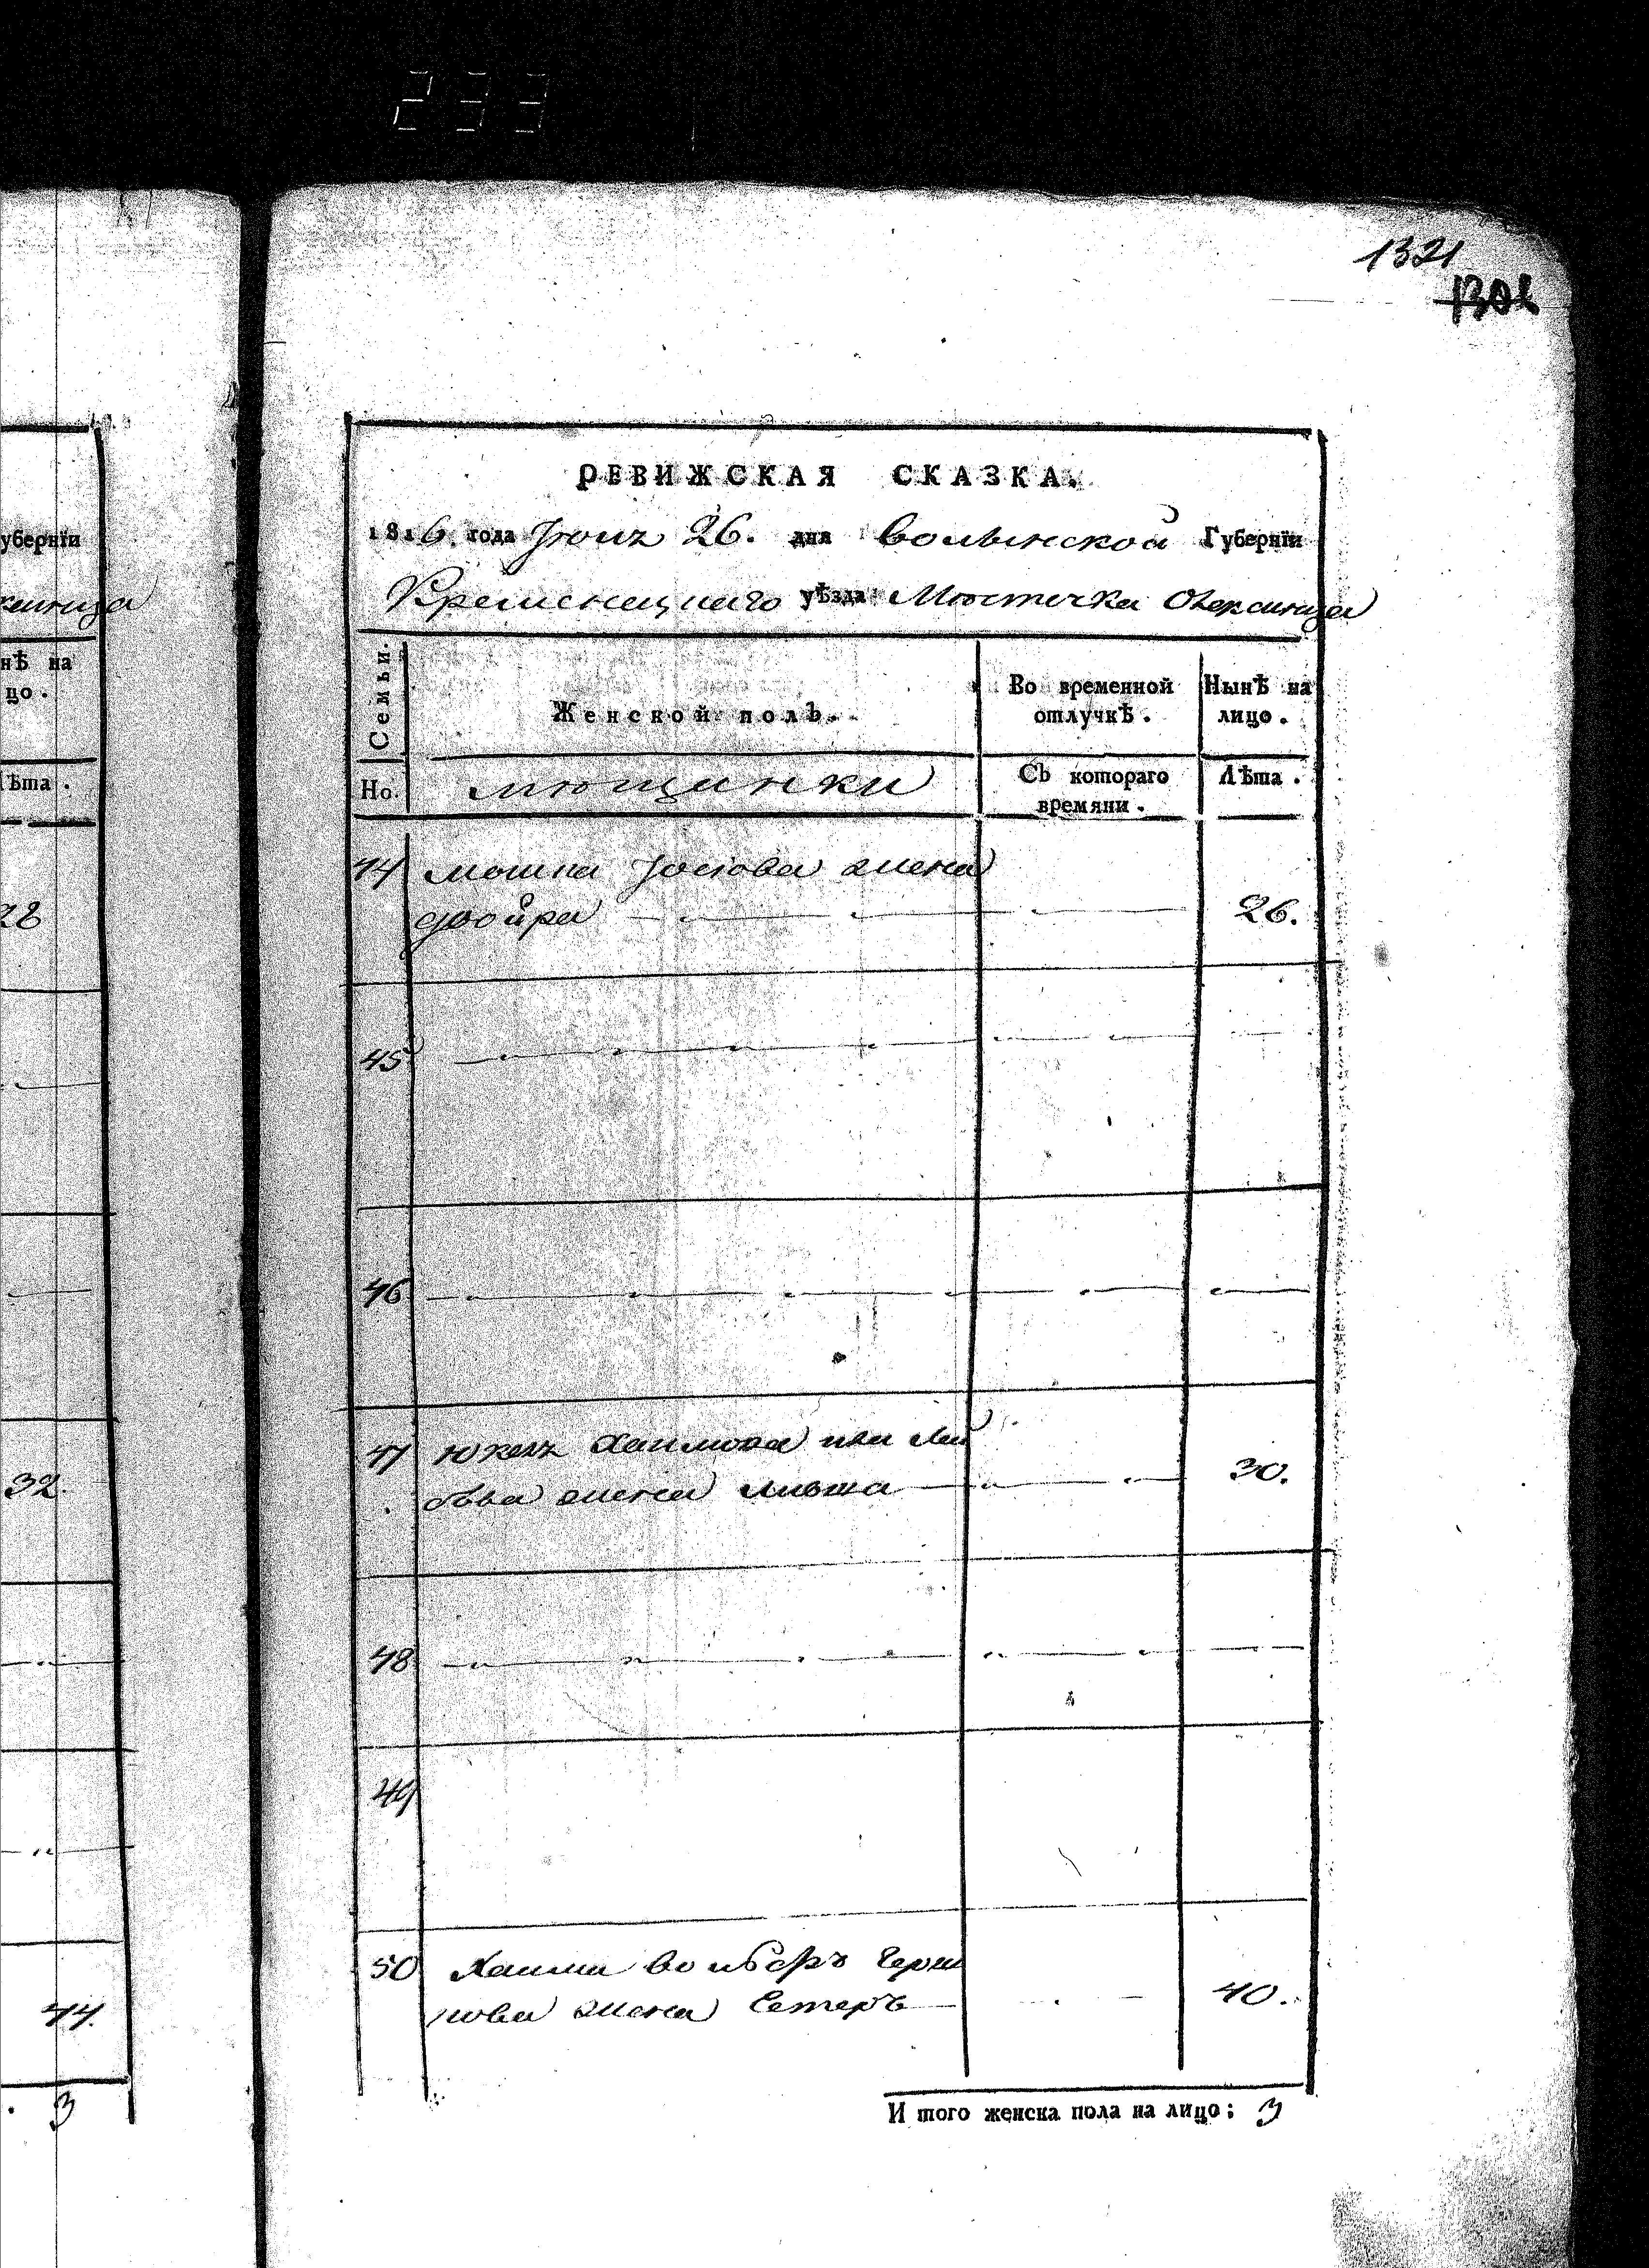 233
1321
1308
уберніи
РЕВИЖСКАЯ СКАЗКА.
1816 года Іюнz 26. дня Волынской Губерніи
Кременецкаго уѣзда Мѣстечка
нѣ на
цо.
Семьи.
Женской полъ.
Во временной отлучкѣ.
Нынѣ на лицо.
ѣта.
Но.
мѣщанки
Съ котораго времяни.
Лѣта.
28
44 мошка Іосіова жена
двойра 26.
45
46
32.
47 Юкель Хаимова или Лей
бова жена 30.
48
49
44.
50 Хаима Вольберъ Герш
кова жена Естеръ 40.
3
И того женска пола на лицо; 3